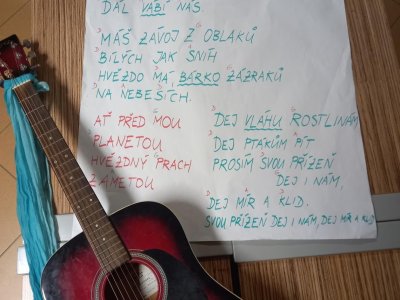 DÁL VÁBÍ NÁS.
MÁŠ ZÁVOJ Z OBLAKŮ
BÍLÝCH JAK SNÍH
HVĚZDO MÁ, BÁRKO ZÁZRAKŮ
NA NEBESÍCH.
AŤ PŘED MOU
PLANETOU
HVĚZDNÝ PRACH
ZAMETOU
DEJ VLÁHU ROSTLINÁM
DEJ PTÁKŮM PÍT
PROSÍM SVOU PŘÍZEŇ
DEJ I NÁM,
DEJ MÍR A KLID.
SVOU PŘÍZEŇ DEJ I NÁM, DEJ MÍR A KLID